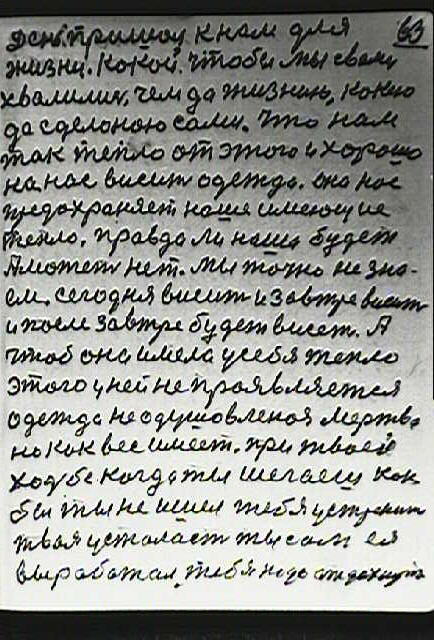 день. пришол к нам для 63
жизни. какой. чтоби мы свами
хвалилих, чем да жизнию, какию
да сделоною сами. что нам
так тепло от этого и хорошо
на нас висит одежда. она нас
предохраняет наше имеющие
тепло. правда ли наша будет
А может нет. мы точно не зна-
ем. сегодня висит и завтре висит
и после завтре будет висет. А
чтоб она имела у себя тепло
этого у ней не проявляется
одежда не одушовленая мертва
но как вес имеет. при твоей
ходбе когда ты шегаеш как
бы ты не ишел тебя устренит
твоя усталаст ты сам ея
выработал, тебя надо отдахнуть